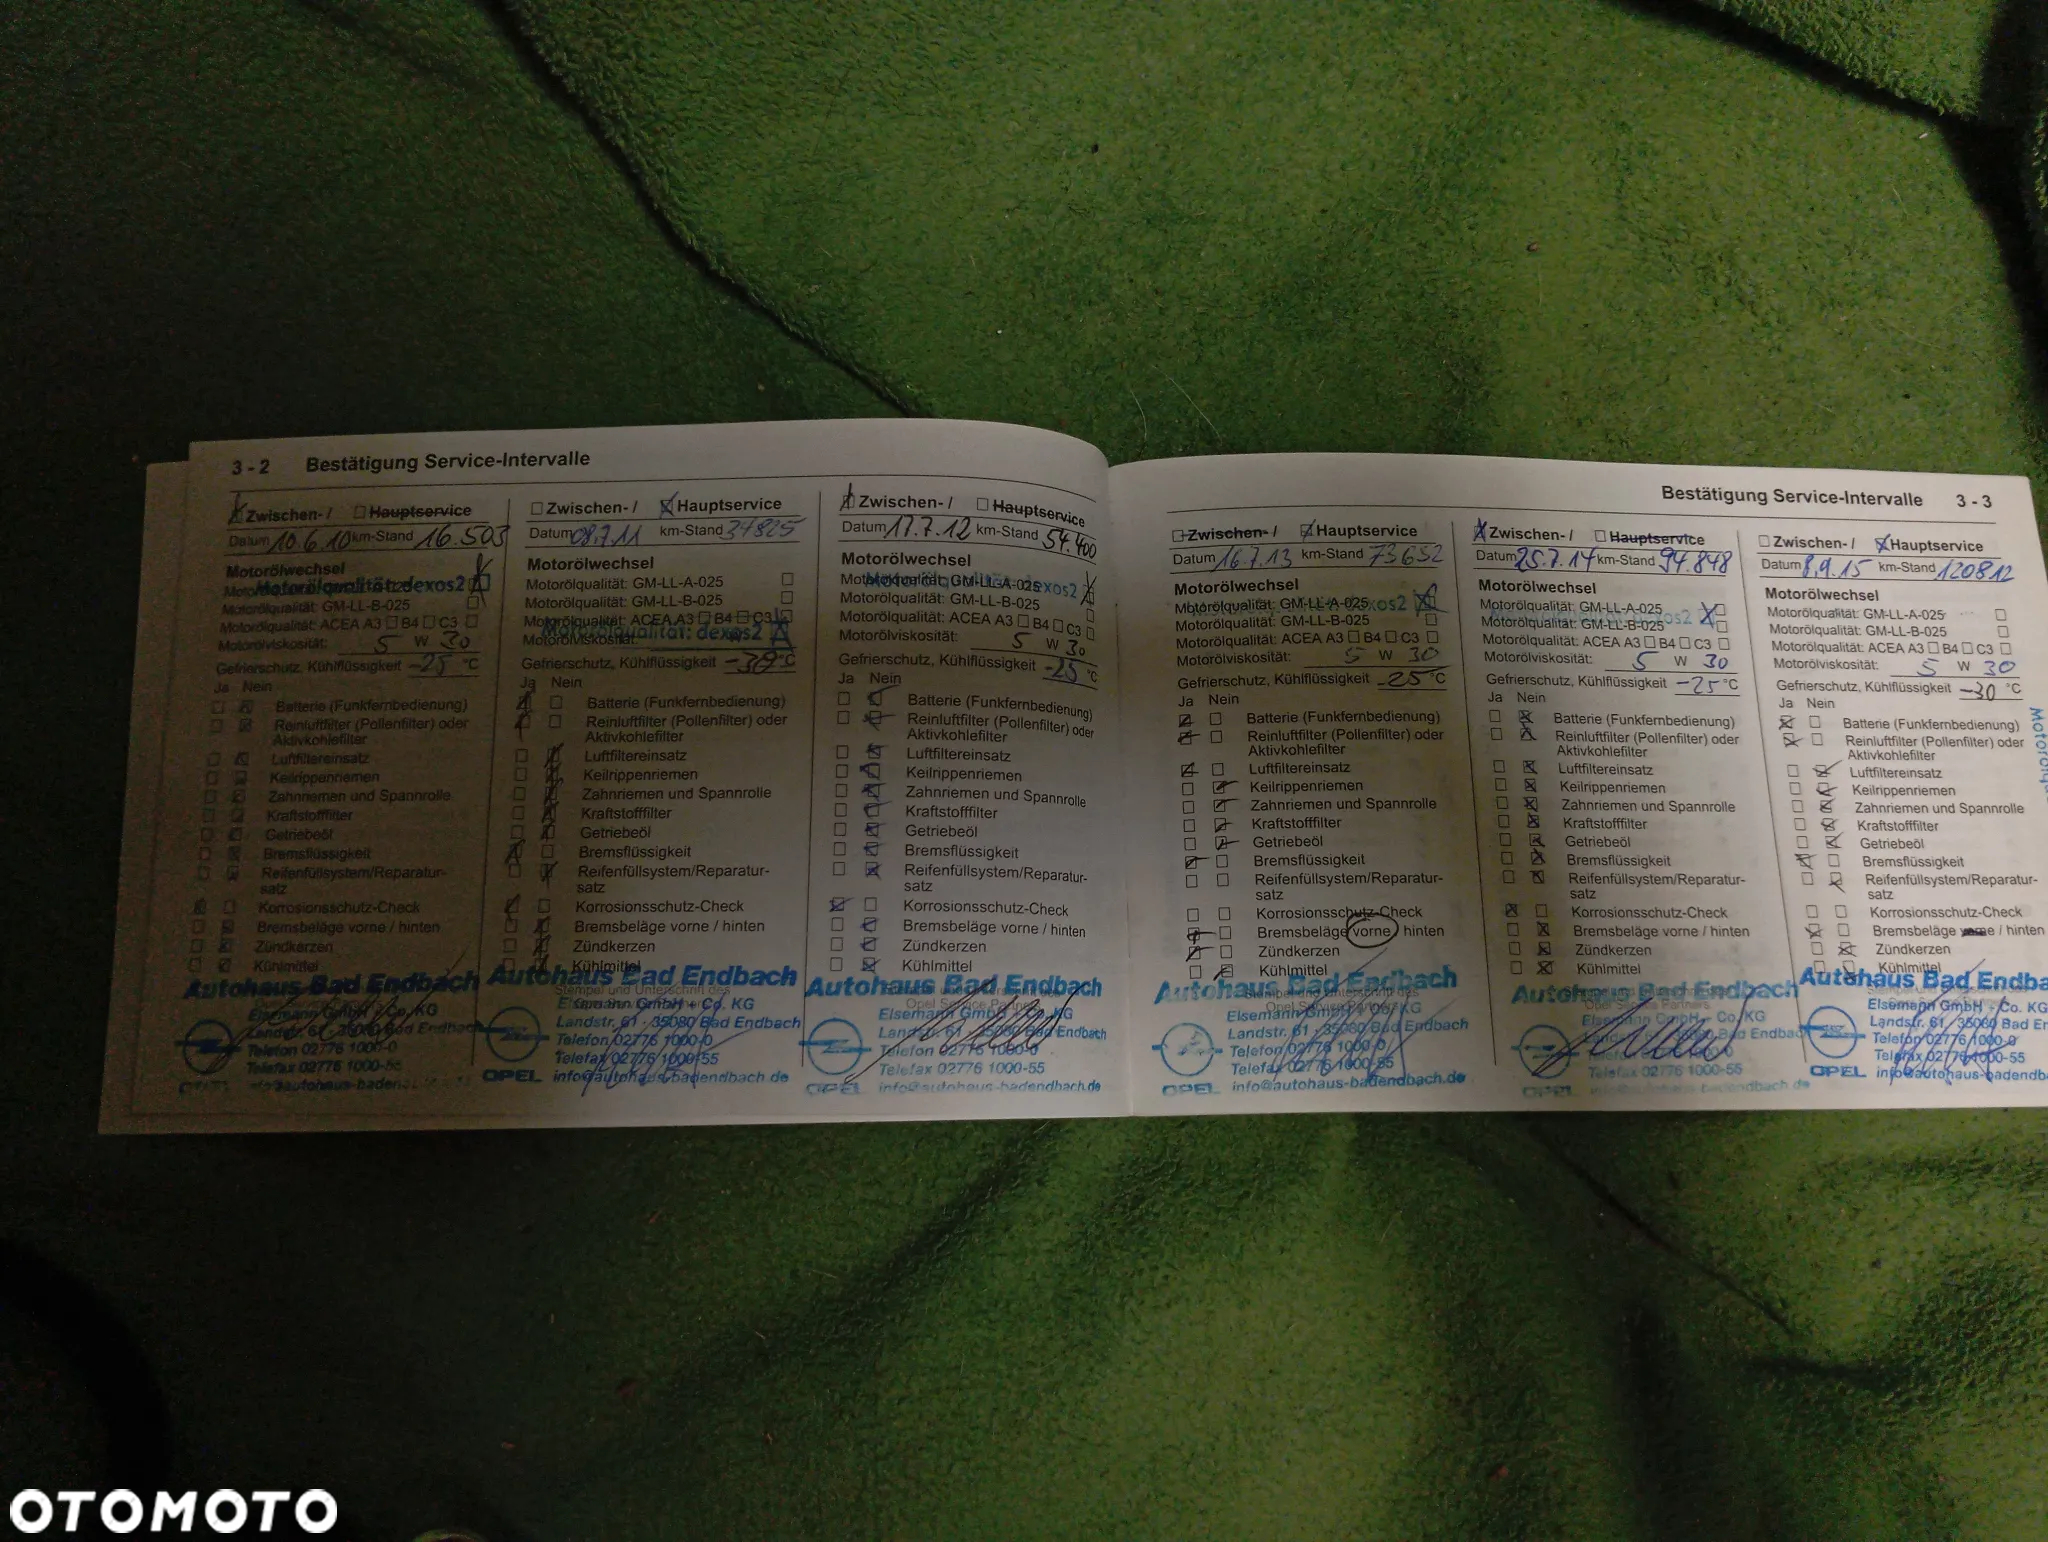 3 - 2 Bestätigung Service-Intervalle
Zwischen- / Hauptservice
Datum 10.6.10 km-Stand 16.503
Motorölwechsel
Motorölqualität: dexos2
Motorölqualität: GM-LL-B-025
Motorölqualität: ACEA A3 B4 C3
Motorölviskosität: 5 W 30
Gefrierschutz, Kühlflüssigkeit -25 °C
Ja Nein
Batterie (Funkfernbedienung)
Reinluftfilter (Pollenfilter) oder
Aktivkohlefilter
Luftfiltereinsatz
Keilrippenriemen
Zahnriemen und Spannrolle
Kraftstofffilter
Getriebeöl
Bremsflüssigkeit
Reifenfüllsystem/Reparatur-
satz
Korrosionsschutz-Check
Bremsbeläge vorne / hinten
Zündkerzen
Kühlmittel
Autohaus Bad Endbach
Elsemann GmbH + Co. KG
Landstr. 61 · 35080 Bad Endbach
Telefon 02776 1000-0
Telefax 02776 1000-55
Zwischen- / Hauptservice
Datum 08.7.11 km-Stand 34825
Motorölwechsel
Motorölqualität: GM-LL-A-025
Motorölqualität: GM-LL-B-025
Motorölqualität: ACEA A3 B4 C3
Motorölqualität: dexos2
Motorölviskosität:
Gefrierschutz, Kühlflüssigkeit °C
Ja Nein
Batterie (Funkfernbedienung)
Reinluftfilter (Pollenfilter) oder
Aktivkohlefilter
Luftfiltereinsatz
Keilrippenriemen
Zahnriemen und Spannrolle
Kraftstofffilter
Getriebeöl
Bremsflüssigkeit
Reifenfüllsystem/Reparatur-
satz
Korrosionsschutz-Check
Bremsbeläge vorne / hinten
Zündkerzen
Kühlmittel
Autohaus Bad Endbach
Elsemann GmbH + Co. KG
Landstr. 61 · 35080 Bad Endbach
Telefon 02776 1000-0
Telefax 02776 1000-55
OPEL info@autohaus-badendbach.de
Zwischen- / Hauptservice
Datum 17.7.12 km-Stand 54.400
Motorölwechsel
Motorölqualität: GM-LL-A-025 dexos2
Motorölqualität: GM-LL-B-025
Motorölqualität: ACEA A3 B4 C3
Motorölviskosität: 5 W 30
Gefrierschutz, Kühlflüssigkeit -25 °C
Ja Nein
Batterie (Funkfernbedienung)
Reinluftfilter (Pollenfilter) oder
Aktivkohlefilter
Luftfiltereinsatz
Keilrippenriemen
Zahnriemen und Spannrolle
Kraftstofffilter
Getriebeöl
Bremsflüssigkeit
Reifenfüllsystem/Reparatur-
satz
Korrosionsschutz-Check
Bremsbeläge vorne / hinten
Zündkerzen
Kühlmittel
Autohaus Bad Endbach
Elsemann GmbH + Co. KG
Landstr. 61 35080 Bad Endbach
Telefon 02776 1000-0
Telefax 02776 1000-55
OPEL info@autohaus-badendbach.de
Bestätigung Service-Intervalle 3 - 3
Zwischen- / Hauptservice
Datum 16.7.13 km-Stand 73652
Motorölwechsel
Motorölqualität: GM-LL-A-025 dexos2
Motorölqualität: GM-LL-B-025
Motorölqualität: ACEA A3 B4 C3
Motorölviskosität: 5 W 30
Gefrierschutz, Kühlflüssigkeit -25 °C
Ja Nein
Batterie (Funkfernbedienung)
Reinluftfilter (Pollenfilter) oder
Aktivkohlefilter
Luftfiltereinsatz
Keilrippenriemen
Zahnriemen und Spannrolle
Kraftstofffilter
Getriebeöl
Bremsflüssigkeit
Reifenfüllsystem/Reparatur-
satz
Korrosionsschutz-Check
Bremsbeläge vorne / hinten
Zündkerzen
Kühlmittel
Autohaus Bad Endbach
Elsemann GmbH + Co. KG
Landstr. 61 · 35080 Bad Endbach
Telefon 02776 1000-0
Telefax 02776 1000-55
OPEL info@autohaus-badendbach.de
Zwischen- / Hauptservice
Datum 25.7.14 km-Stand 94.848
Motorölwechsel
Motorölqualität: GM-LL-A-025
Motorölqualität: GM-LL-B-025
Motorölqualität: ACEA A3 B4 C3
Motorölviskosität: 5 W 30
Gefrierschutz, Kühlflüssigkeit -25 °C
Ja Nein
Batterie (Funkfernbedienung)
Reinluftfilter (Pollenfilter) oder
Aktivkohlefilter
Luftfiltereinsatz
Keilrippenriemen
Zahnriemen und Spannrolle
Kraftstofffilter
Getriebeöl
Bremsflüssigkeit
Reifenfüllsystem/Reparatur-
satz
Korrosionsschutz-Check
Bremsbeläge vorne / hinten
Zündkerzen
Kühlmittel
Autohaus Bad Endbach
Elsemann GmbH + Co. KG
35080 Bad Endbach
Telefax 02776 1000-55
Zwischen- / Hauptservice
Datum 8.9.15 km-Stand 120812
Motorölwechsel
Motorölqualität: GM-LL-A-025
Motorölqualität: GM-LL-B-025
Motorölqualität: ACEA A3 B4 C3
Motorölviskosität: 5 W 30
Gefrierschutz, Kühlflüssigkeit -30 °C
Ja Nein
Batterie (Funkfernbedienung)
Reinluftfilter (Pollenfilter) oder
Aktivkohlefilter
Luftfiltereinsatz
Keilrippenriemen
Zahnriemen und Spannrolle
Kraftstofffilter
Getriebeöl
Bremsflüssigkeit
Reifenfüllsystem/Reparatur-
satz
Korrosionsschutz-Check
Bremsbeläge vorne / hinten
Zündkerzen
Kühlmittel
Autohaus Bad Endba
Elsemann GmbH + Co. KG
Landstr. 61 35080 Bad En
Telefon 02776 1000-0
Telefax 02776 1000-55
OPEL info@autohaus-badendb
OTOMOTO